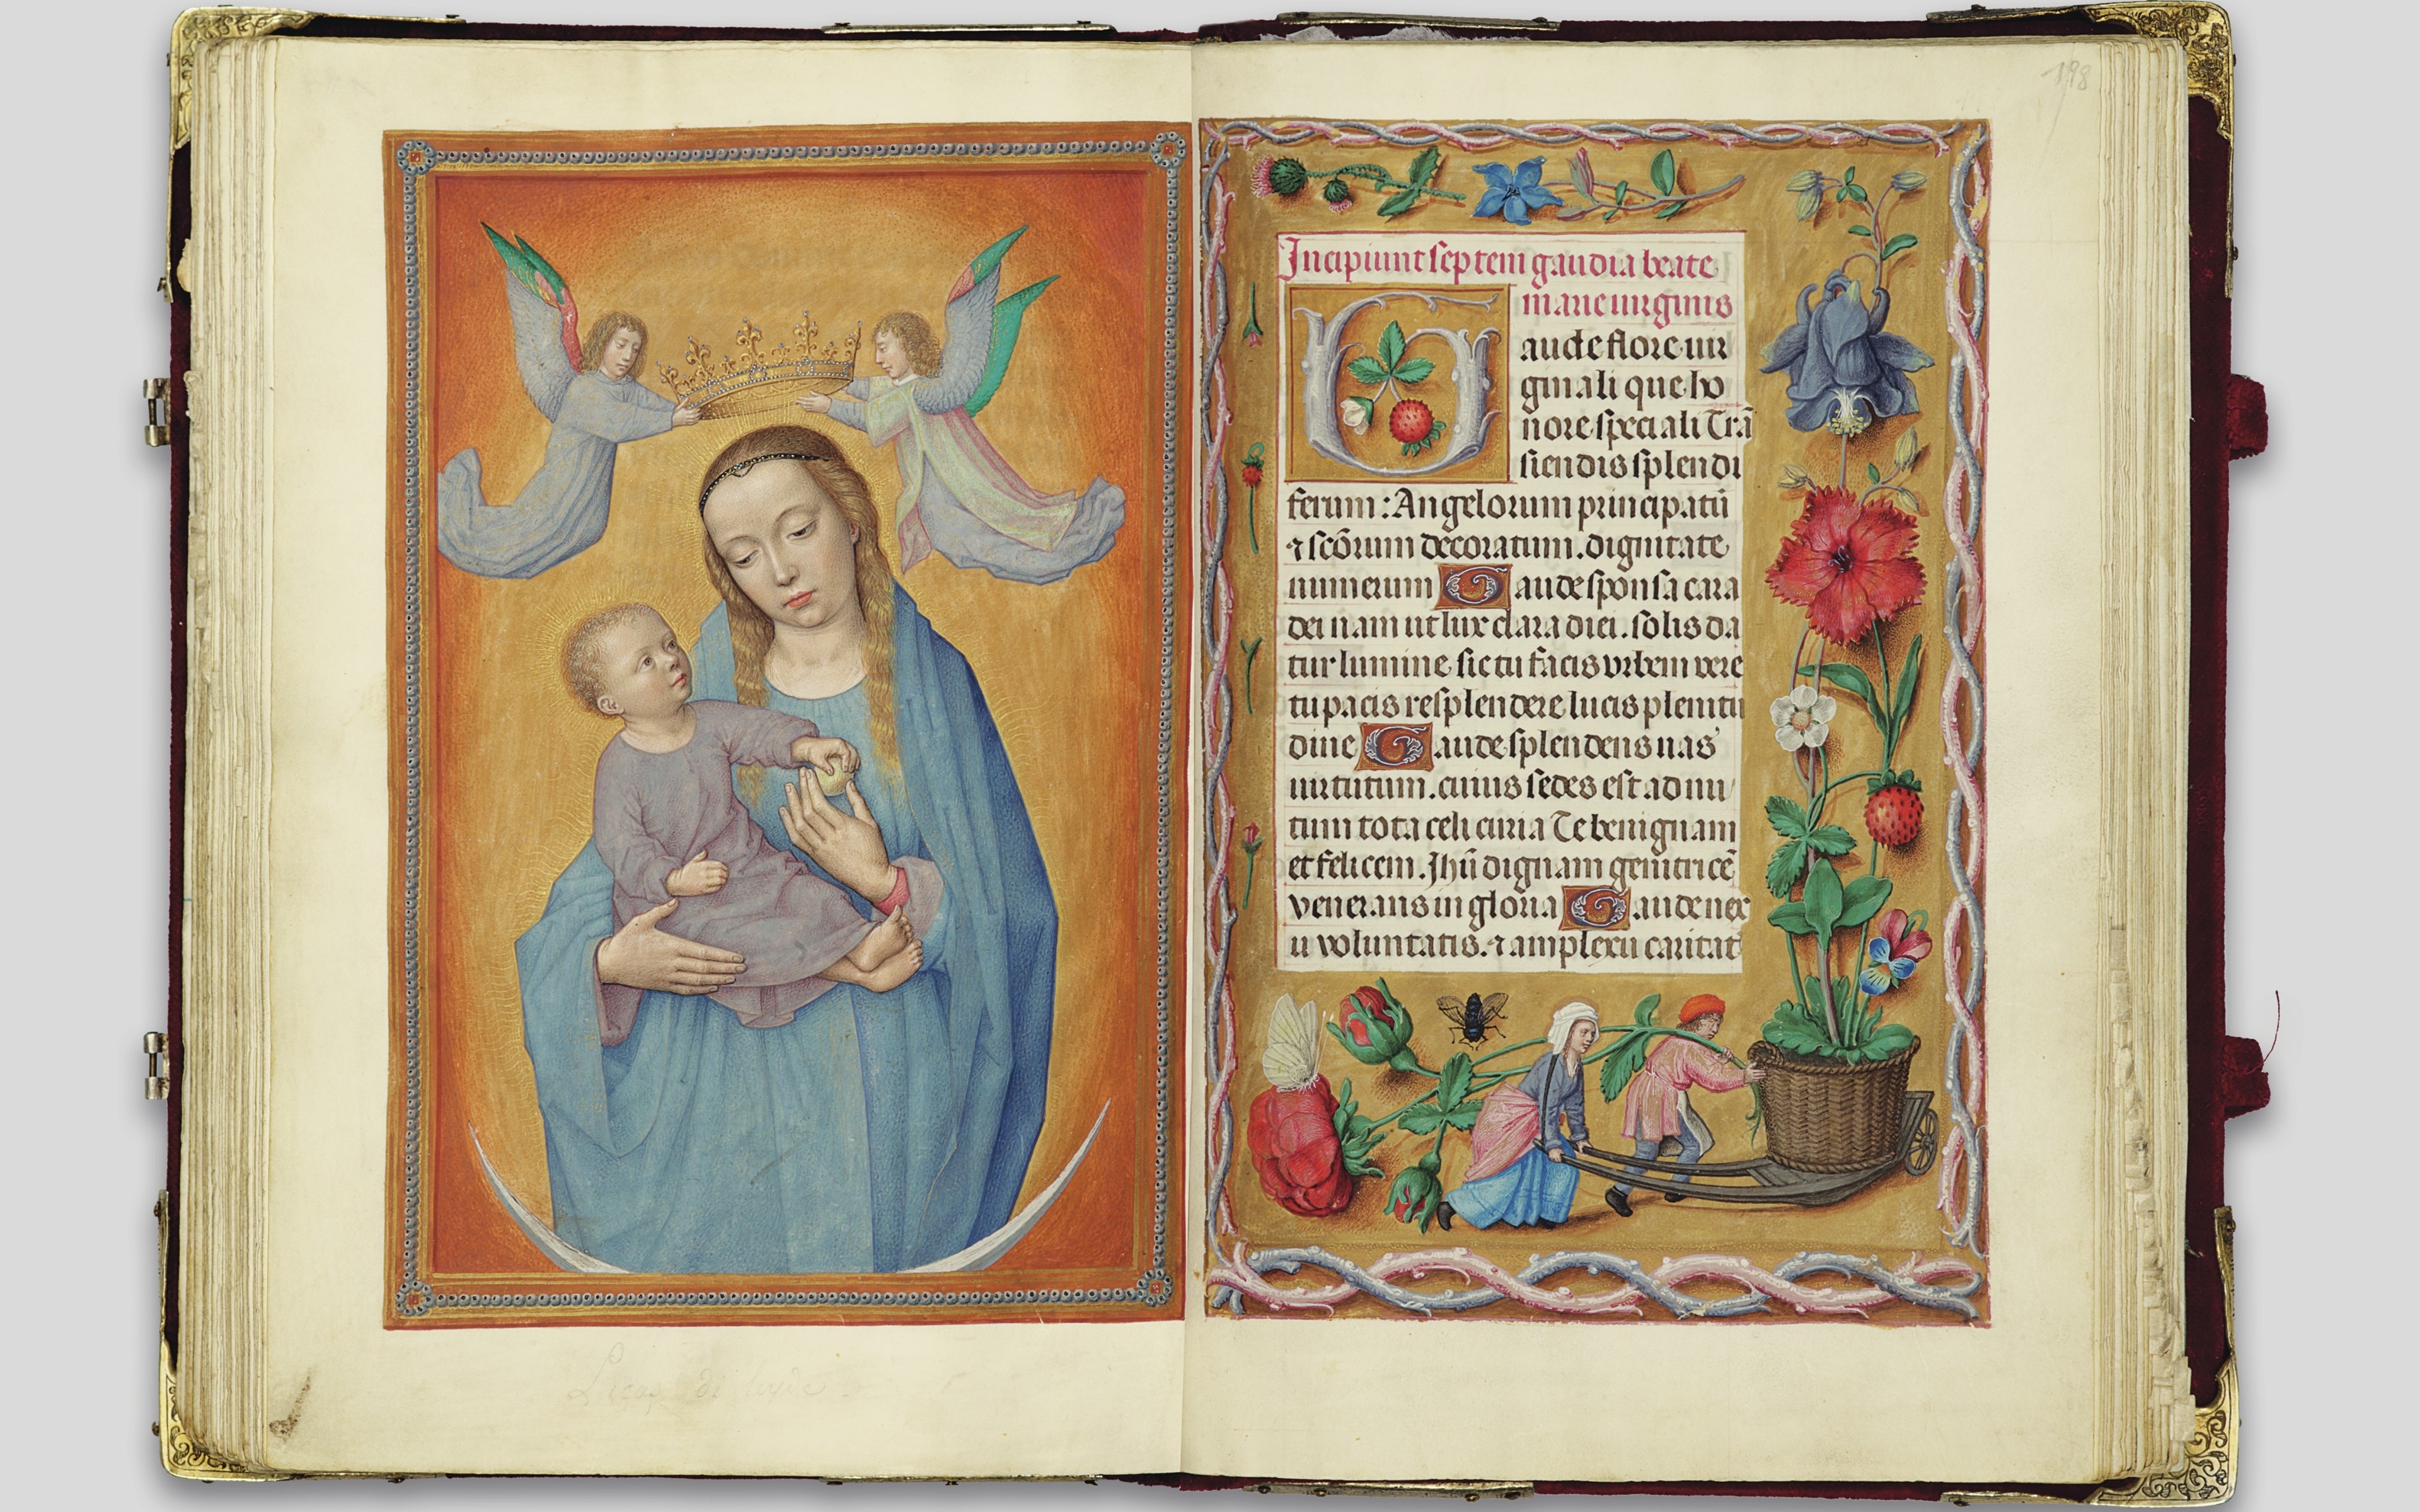 198
Incipiunt septem gaudia beate
marie uirginis
Gaude flore uir
ginali que ho
nore speciali Trā
siendis splendi
ferum : Angelorum principatū
⁊ scōrum decoratum . dignitate
numerum Gaude sponsa cara
dei nam ut lux clara diei . solis da
tur lumine sic tu facis vrbem vere
tu pacis resplendere lucis plenitu
dine Gaude splendens uas
uirtutum . cuius sedes est ad nu
tum tota celi curia Te benignam
et felicem . Jhū dignam genitricē
venerans in gloria Gaude nex
u voluntatis . ⁊ amplexu caritat
Lucas di leyde